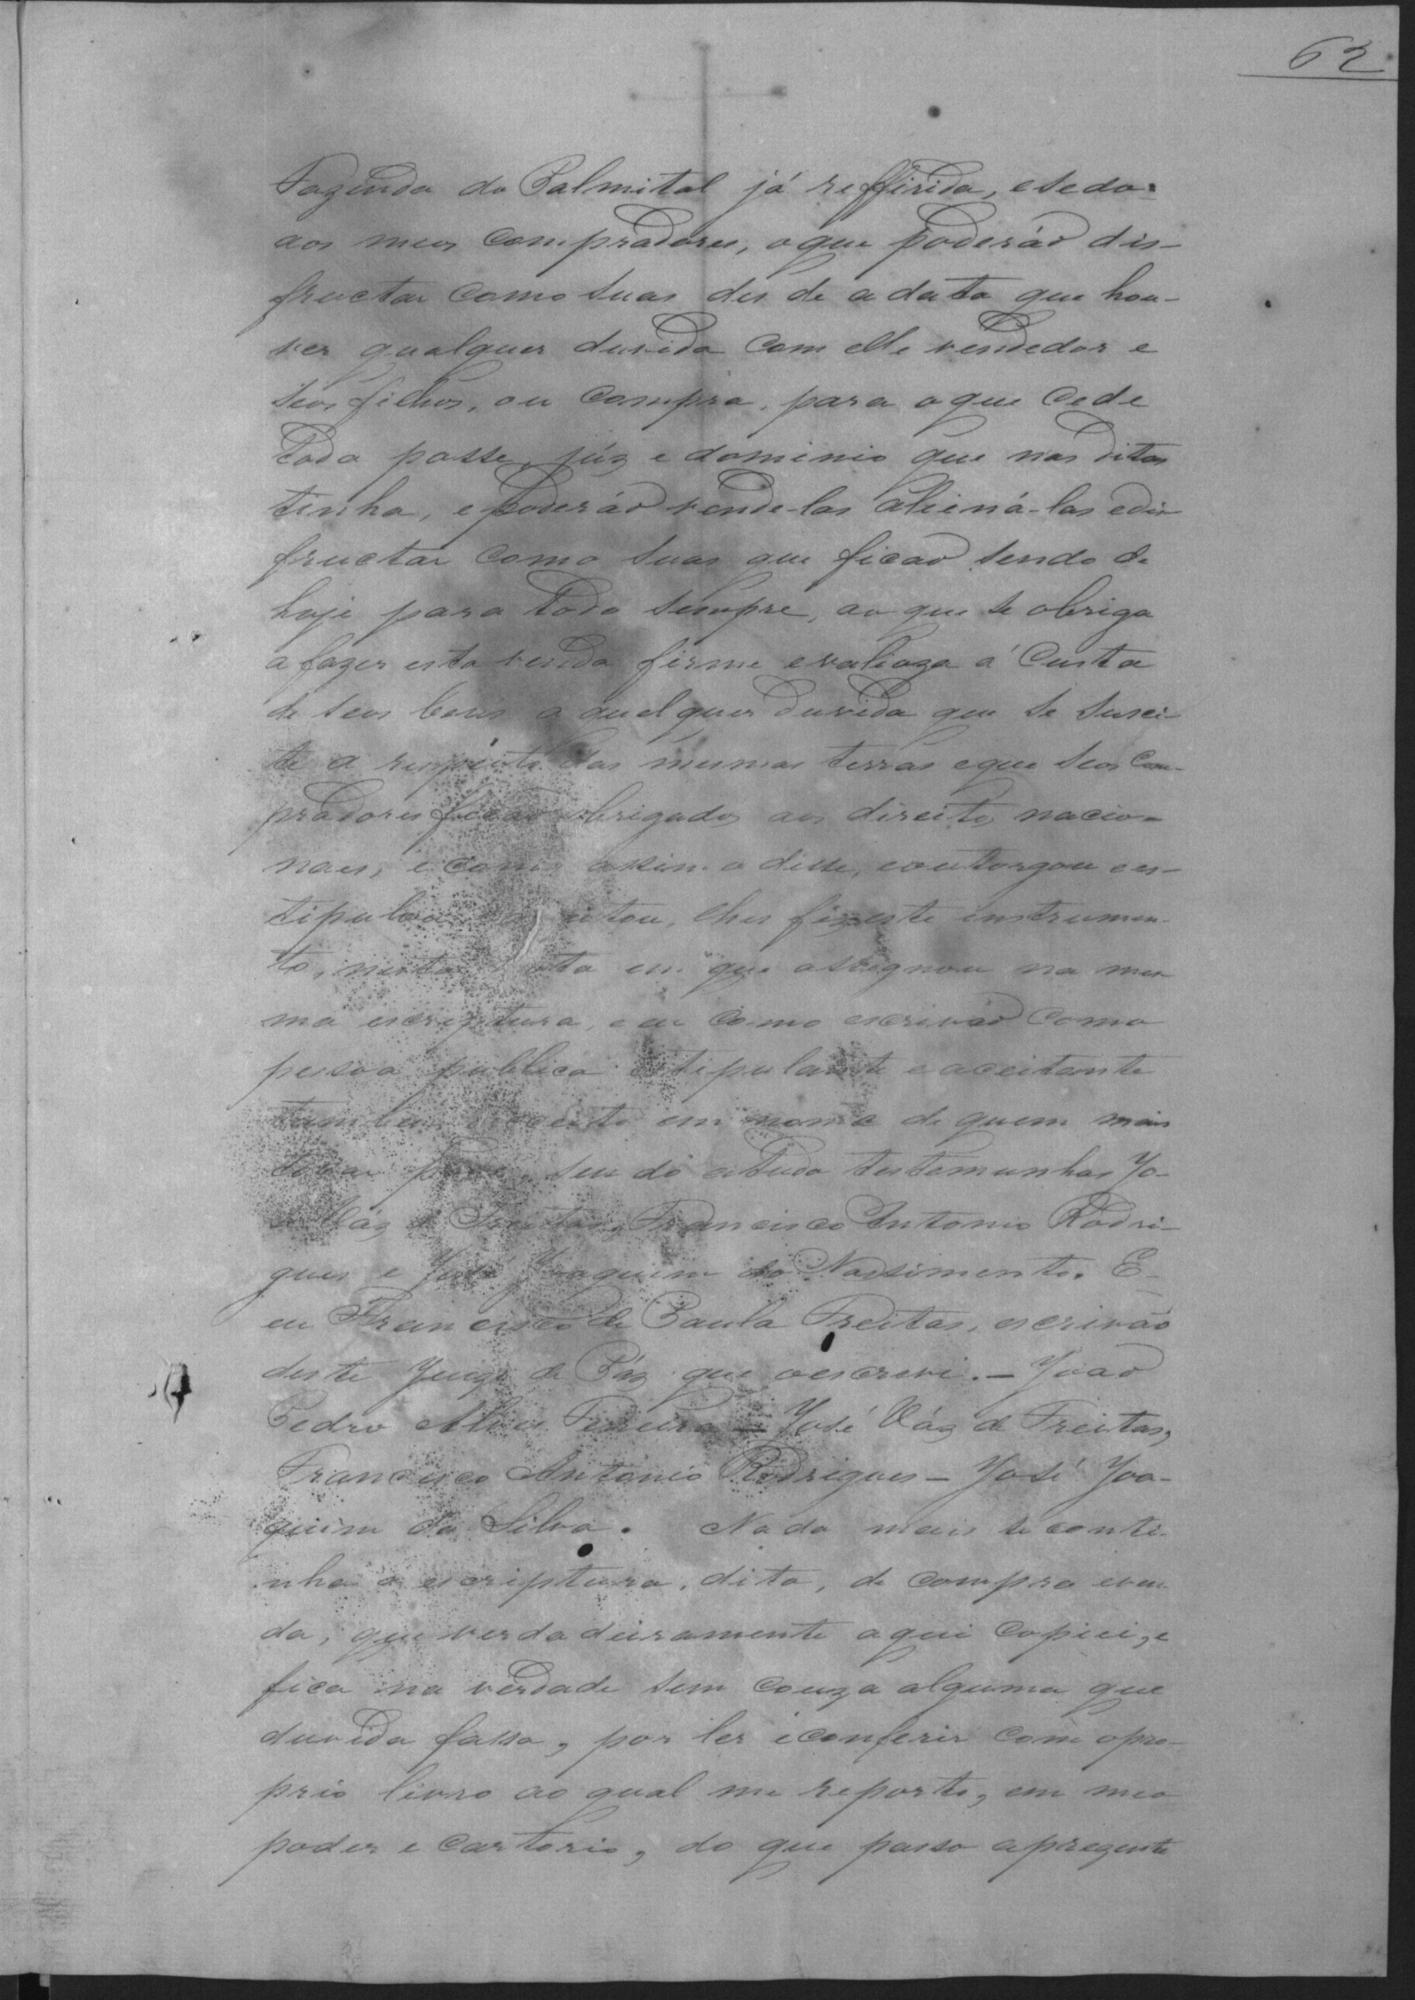 62
Fazenda do Palmital já reffirida, e se da
aos meos compradores, o que poderáõ dis-
fructar como suas des de a data que hou-
ver qualquer duvida com elle vendedor e
seos filhos, ou compra, para o que cede
toda posse, júz e dominio que nas ditas
tinha, e poderáõ vende-las aliená-las e dis
fructar como suas que ficaõ sendo de
hoje para todo sempre, ao que se obriga
a fazer esta venda firme e valioza á custa
de seos bens a qualquer duvida que se susci-
te a respeito das mesmas terras e que seos com-
pradores ficaõ obrigados aos direitos nacio-
naes, e como assim o disse, e outorgou e es-
tipulou lhes fiz este instrumen-
to, nesta nota em que assignou na mes
ma escriptura, e eu como escrivaõ como
pessoa publica estipulante e aceitante
tambem acceito em nome de quem mais
tocar possa, sendo a tudo testemunhas Jo-
sé Váz de Freitas, Francisco Antonio Rodri-
gues e José Joaquim do Nassimento. E
eu Francisco de Paula Freitas, escrivão
deste Juizo de Páz que o escrevi. — João
Pedro Alves Pereira — José Váz de Freitas,
Francisco Antonio Rodrigues — José Joa-
quim da Silva. Nada mais se conti-
nha a escriptura, dita, de compra e ven
da, que verdadeiramente aqui copiei, e
fica na verdade sem couza alguma que
duvida fassa, por ler e conferir com o pro-
prio livro ao qual me reporto, em meo
poder e cartorio, do que passo a prezente